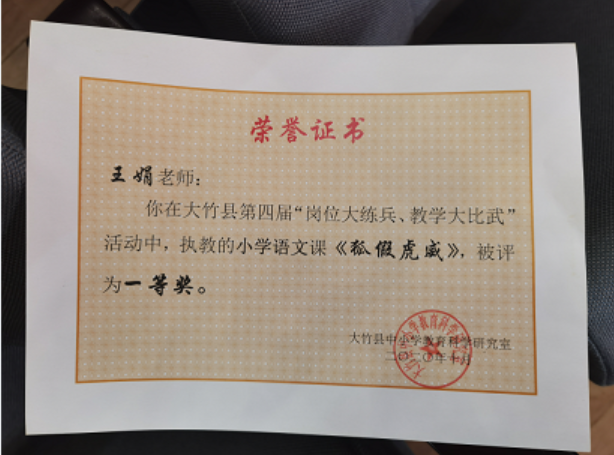 荣誉证书
王娟老师：
你在大竹县第四届“岗位大练兵、教学大比武”
活动中，执教的小学语文课《狐假虎威》，被评
为一等奖。
大竹县中小学教育科学研究室
二〇二〇年十月